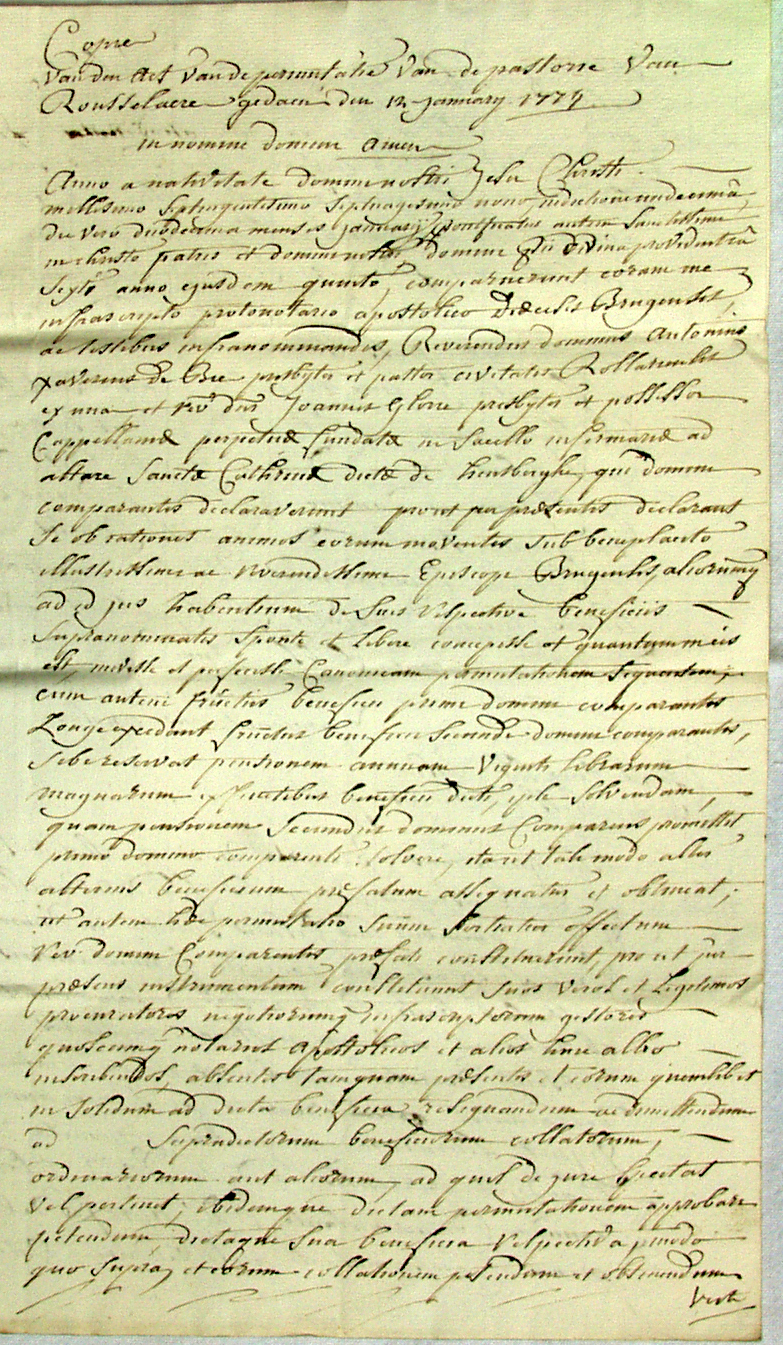 Copie
van den Act van de permutatie van de pastorie van
Rousselaere gedaen den 12 january 1779
in nomine domini amen
Anno a nativitate domini nostri Jesu Christi
millesimo septingentesimo septuagesimo nono indictione undecima
die vero duodecima mensis januarij pontificatus autem sanctissimi
in christo patris et domini nostri domini pii divina providentia
sexti anno ejusdem quinto, comparuerunt coram me
infrascripto protonotario apostolico Diœcesis Brugensis,
ac testibus infranominandis, Reverendus dominus Antonius
xaverius de Bie presbyter et pastor civitatis Rollariensis
ex una et rev. dns Joannes Glorie presbyter et possessor
Cappellaniæ perpetuæ fundatæ in sacello infirmariæ ad
altare Sanctæ Cathrinæ dictæ de hertsberghe, qui domini
comparentes declaraverunt prout per præsentes declarant
se ob rationes animos eorum moventes sub beneplacito
illustrissimi ac reverendissimi Episcopi Brugensis, aliorumq
ad id jus habentium de suis respective beneficiis
supranominatis sponte et libere concepisse et quantum in eis
est, inivisse et perfecisse Canonicam permutationem sequentem;
cum autem fructus beneficii primi domini comparentis
Longe excedant fructus beneficii secundi domini comparentis,
sibi reservat pensionem annuam viginti librarum
magnarum ex fructibus beneficii dicti, ipsi solvendam,
quam pensionem secundus dominus Comparens promittit
primo domino comparenti solvere, ita ut tali modo alter
alterius beneficium præfatum assequatur et obtineat;
ut autem hæc permutatio suum sortiatur effectum
Rev. domini Comparentes præfati constituerunt, pro ut per
præsens instrumentum constituunt suos veros et Legitimos
procuratores negotiorumq infrascriptorum gestores
quoscumq notarios Apostolicos et alios hinc albo
inscribendos, absentes tamquam præsentes et eorum quemlibet
in solidum ad dicta beneficia resignandum ac dimittendum
ad supradictorum beneficiorum collatorum,
ordinariorum aut aliorum, ad quos de jure spectat
vel pertinet, ibidemque dictam permutationem approbari
petendum, dictaque sua beneficia respectiva modo
quo supra, et eorum collationem petendum et obtinendum
verte